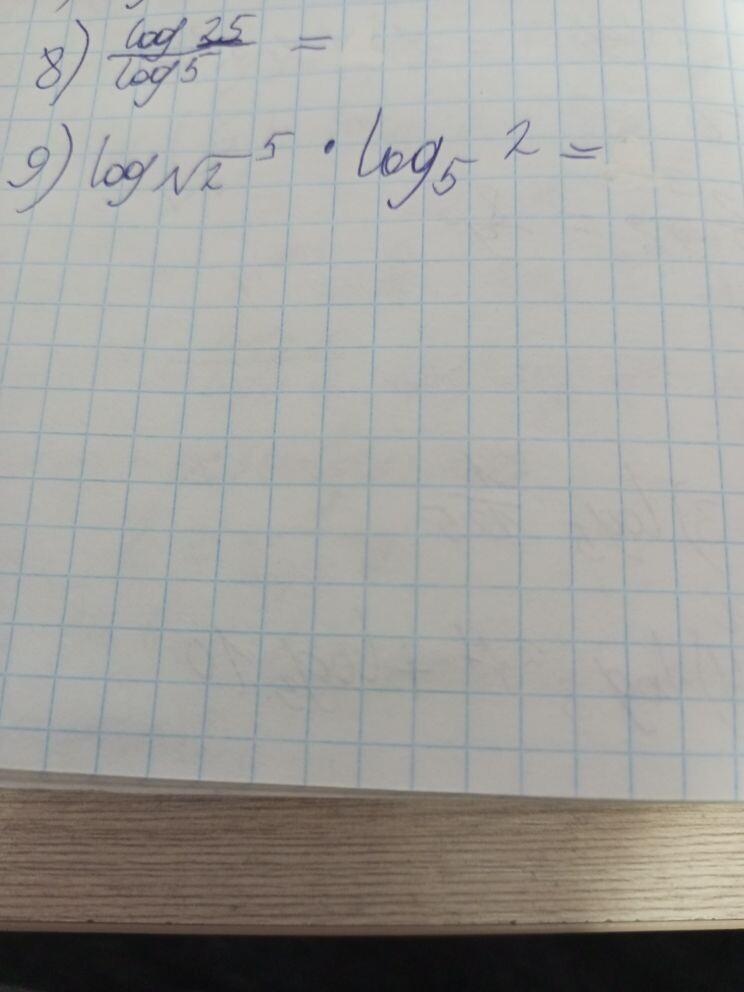 8) log 25 / log 5 =
9) log√2 5 · log5 2 =